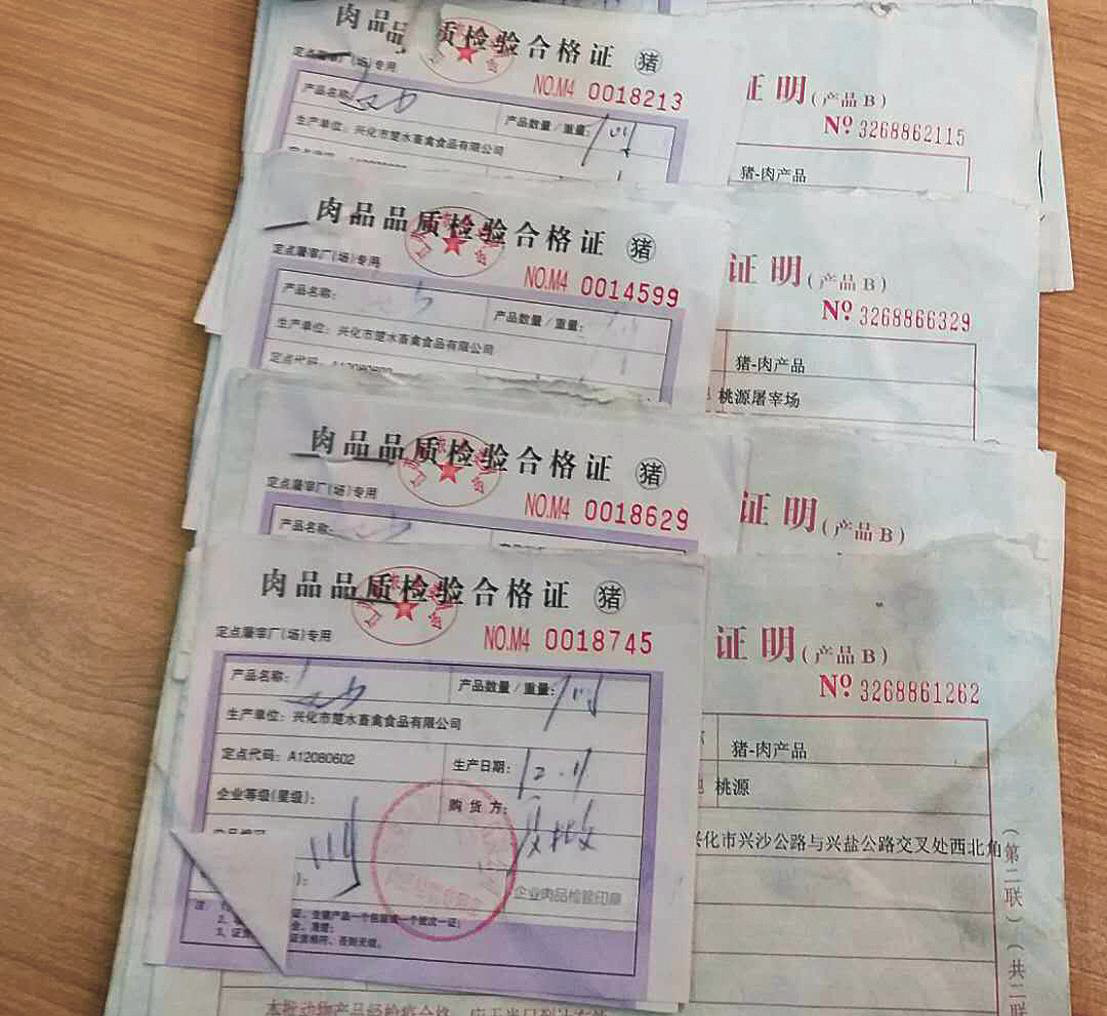 肉品品质检验合格证 猪
定点屠宰厂(场)专用
NO.M4 0018213
产品名称:
产品数量/重量:
生产单位: 兴化市楚水畜禽食品有限公司
证明(产品B)
Nº 3268862115
猪-肉产品
肉品品质检验合格证 猪
定点屠宰厂(场)专用
NO.M4 0014599
产品名称:
产品数量/重量:
生产单位: 兴化市楚水畜禽食品有限公司
定点代码:
证明(产品B)
Nº 3268866329
猪-肉产品
桃源屠宰场
肉品品质检验合格证 猪
定点屠宰厂(场)专用
NO.M4 0018629
产品名称:
证明(产品B)
肉品品质检验合格证 猪
定点屠宰厂(场)专用
NO.M4 0018745
产品名称:
产品数量/重量:
生产单位: 兴化市楚水畜禽食品有限公司
定点代码: A12080602
生产日期: 12.11
企业等级(星级):
购货方:
企业肉品检验印章
注
证明(产品B)
Nº 3268861262
猪-肉产品
桃源
兴化市兴沙公路与兴盐公路交叉处西北角
(第二联)(共二联
本批动物产品经检疫合格,应于当日到达有效